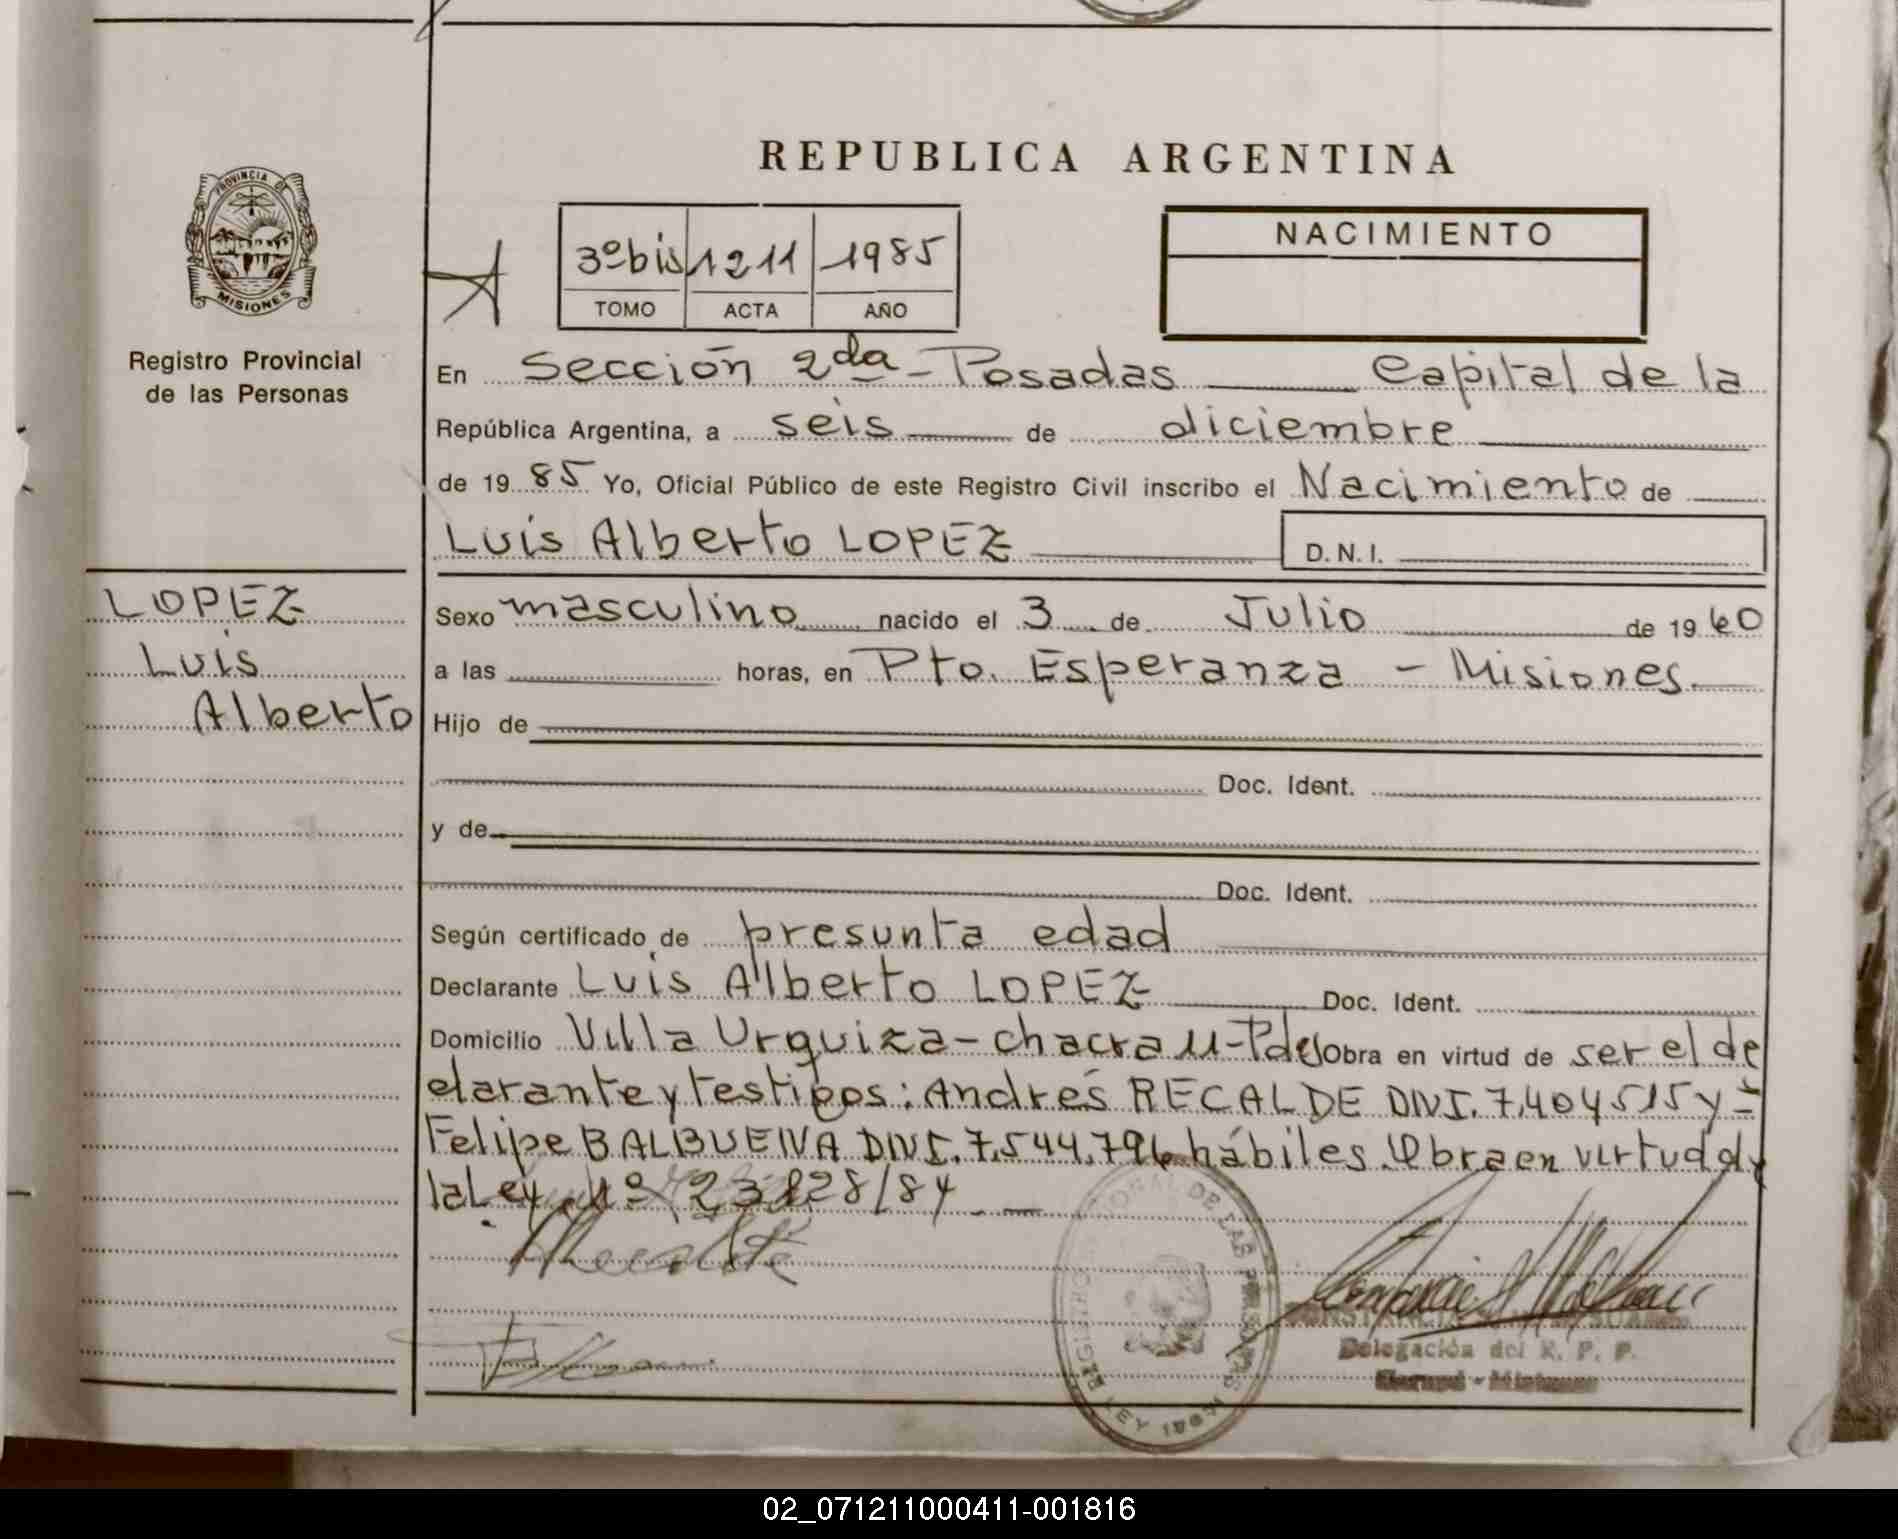 REPUBLICA ARGENTINA
PROVINCIA DE
MISIONES
Registro Provincial
de las Personas
3º bis 1211 1985
TOMO ACTA AÑO
NACIMIENTO
En Sección 2da - Posadas Capital de la
República Argentina, a seis de diciembre
de 1985 Yo, Oficial Público de este Registro Civil inscribo el Nacimiento de
Luis Alberto LOPEZ D.N.I.
LOPEZ
Luis
Alberto
Sexo masculino nacido el 3 de Julio de 1960
a las horas, en Pto. Esperanza - Misiones.
Hijo de
Doc. Ident.
y de
Doc. Ident.
Según certificado de presunta edad
Declarante Luis Alberto LOPEZ Doc. Ident.
Domicilio Villa Urquiza - chacra 11 - Pdas Obra en virtud de ser el de
clarante y testigos: Andrés RECALDE DNI. 7,404515 y -
Felipe BALBUENA DNI. 7,544.796 hábiles. Obra en virtud de
la Ley Nº 23128/84. -
REGISTRO NACIONAL DE LAS PERSONAS
LEY
Delegación del R. P. P.
02_071211000411-001816